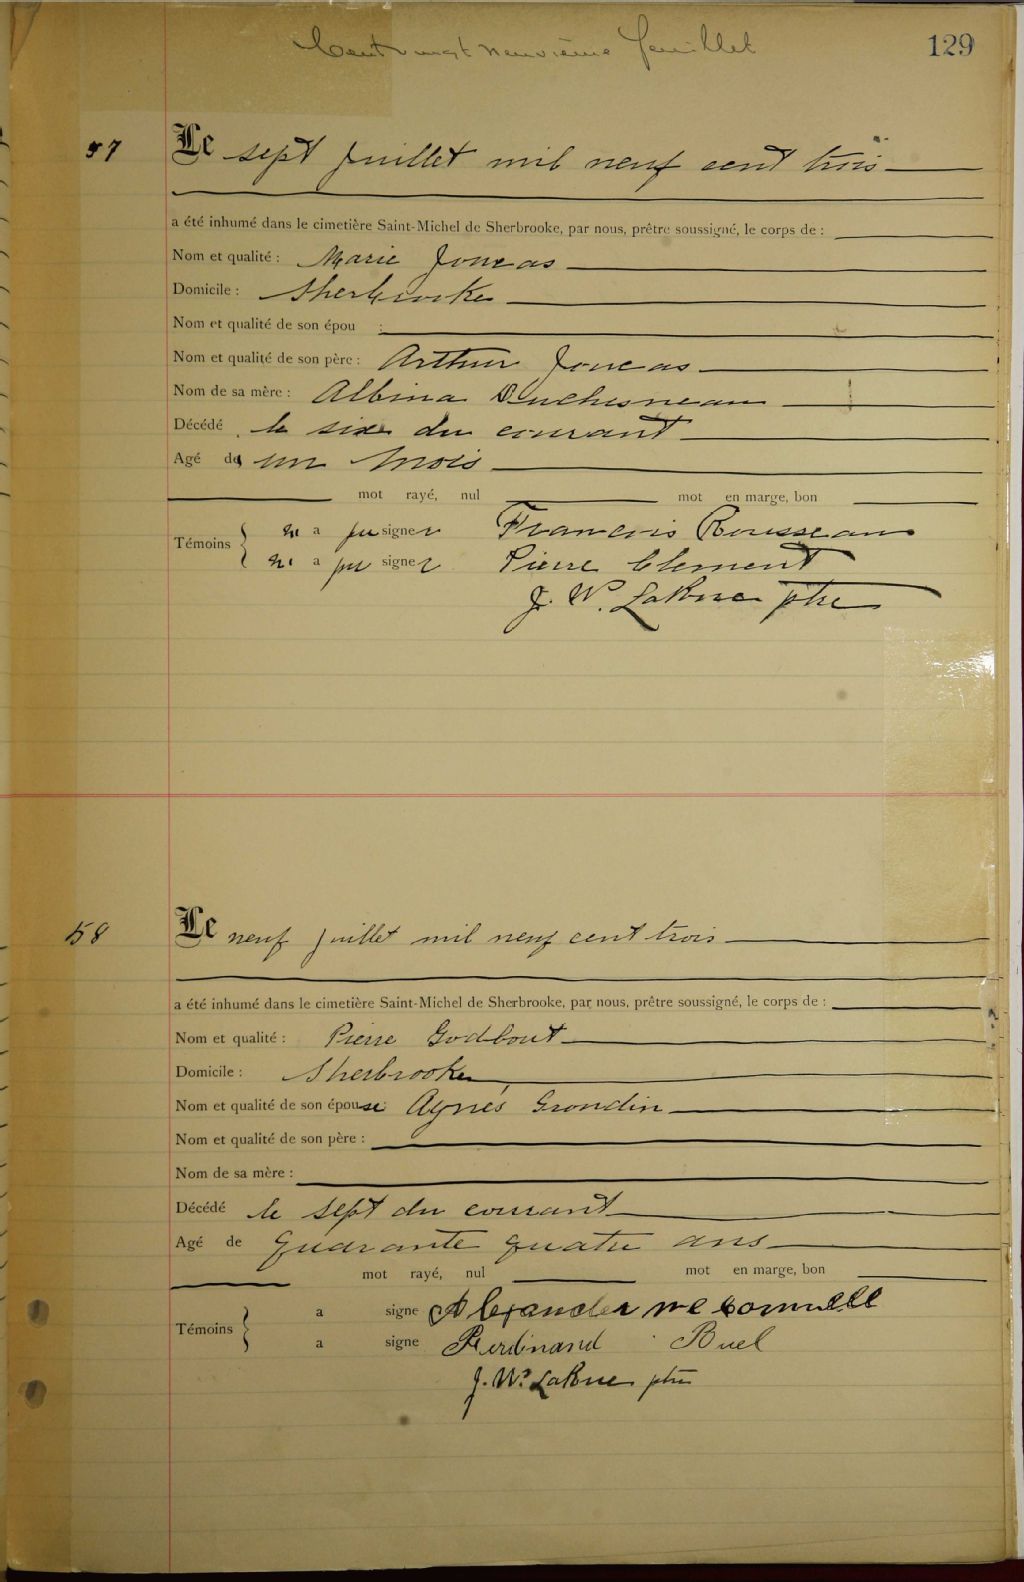 Cent vingt neuvième feuillet
129
57
Le sept Juillet mil neuf cent trois
a été inhumé dans le cimetière Saint-Michel de Sherbrooke, par nous, prêtre soussigné, le corps de :
Nom et qualité : Marie Joncas
Domicile : Sherbrooke
Nom et qualité de son épou :
Nom et qualité de son père : Arthur Joncas
Nom de sa mère : Albina Duchesneau
Décédé le six du courant
Agé de un mois
mot rayé, nul mot en marge, bon
Témoins n' a pu signer François Rousseau
n' a pu signer Pierre Clement
J. W. LaRue ptre
58
Le neuf juillet mil neuf cent trois
a été inhumé dans le cimetière Saint-Michel de Sherbrooke, par nous, prêtre soussigné, le corps de :
Nom et qualité : Pierre Godbout
Domicile : Sherbrooke
Nom et qualité de son épouse Agnés Grondin
Nom et qualité de son père :
Nom de sa mère :
Décédé le sept du courant
Agé de quarante quatre ans
mot rayé, nul mot en marge, bon
Témoins a signe Alexander mc Connell
a signe Ferdinand Buel
J. W. LaRue ptre